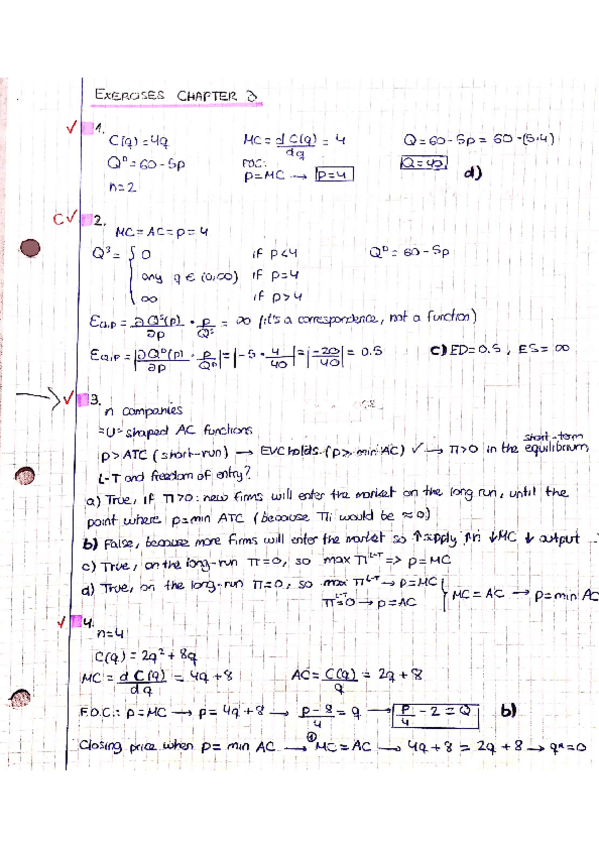 EXERCISES CHAPTER 3
1.
C(q)=4q MC = dC(q)/dq = 4 Q=60-5p = 60-(5·4)
Q^D=60-5p F.O.C: Q=40
n=2 p=MC → p=4 d)
C✓ 2.
MC=AC=p=4
Q^S = { 0 if p<4 Q^D=60-5p
any q ∈ (0,∞) if p=4
∞ if p>4
E_Q,P = ∂Q^S(p)/∂p · p/Q^S = ∞ (it's a correspondence, not a function)
E_Q,P = |∂Q^D(p)/∂p · p/Q^D| = |-5 · 4/40| = |-20/40| = 0.5 c) ED=0.5, ES=∞
3.
n companies
=U= shaped AC functions
p>ATC (short-run) → EVC holds (p> min AC) ✓ → Π>0 in the short-term equilibrium
L-T and freedom of entry?
a) True, if Π>0: new firms will enter the market on the long run, until the
point where p=min ATC (because Πi would be ≈0)
b) False, because more firms will enter the market so ↑supply ↑n ↓MC ↓output
c) True, on the long-run Π=0, so max Π^L-T => p=MC
d) True, on the long-run Π=0, so max Π^L-T → p=MC
Π^L-T=0 → p=AC } MC=AC → p=min AC
4.
n=4
C(q)=2q²+8q
MC = dC(q)/dq = 4q+8 AC = C(q)/q = 2q+8
F.O.C.: p=MC → p=4q+8 → p-8/4 = q → p/4 - 2 = Q b)
Closing price when p= min AC → MC=AC → 4q+8 = 2q+8 → q*=0